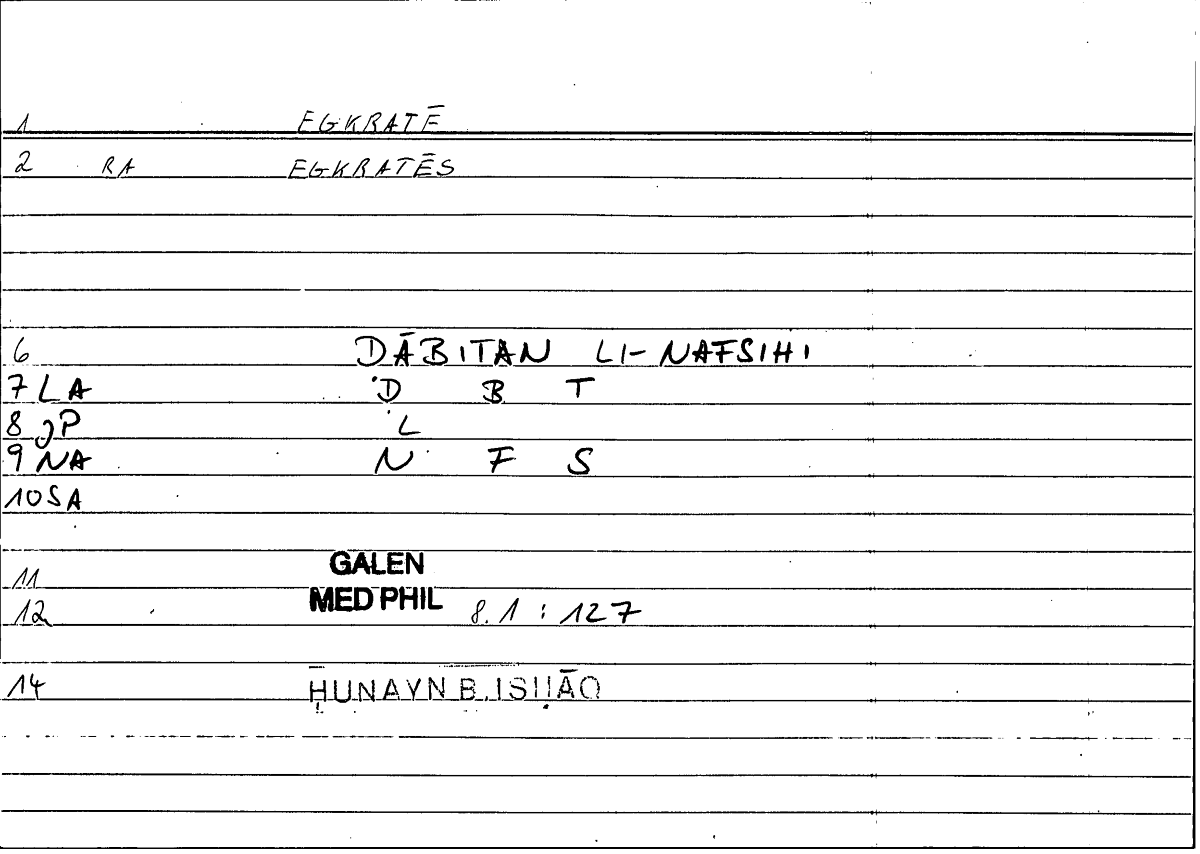 1 EGKRATĒ
2 RA EGKRATĒS
6 DĀBITAN LI-NAFSIHI
7 LA D B T
8 JP L
9 NA N F S
10 SA
11 GALEN
12 MED PHIL 8.1 : 127
14 ḤUNAYN B. ISḤĀQ